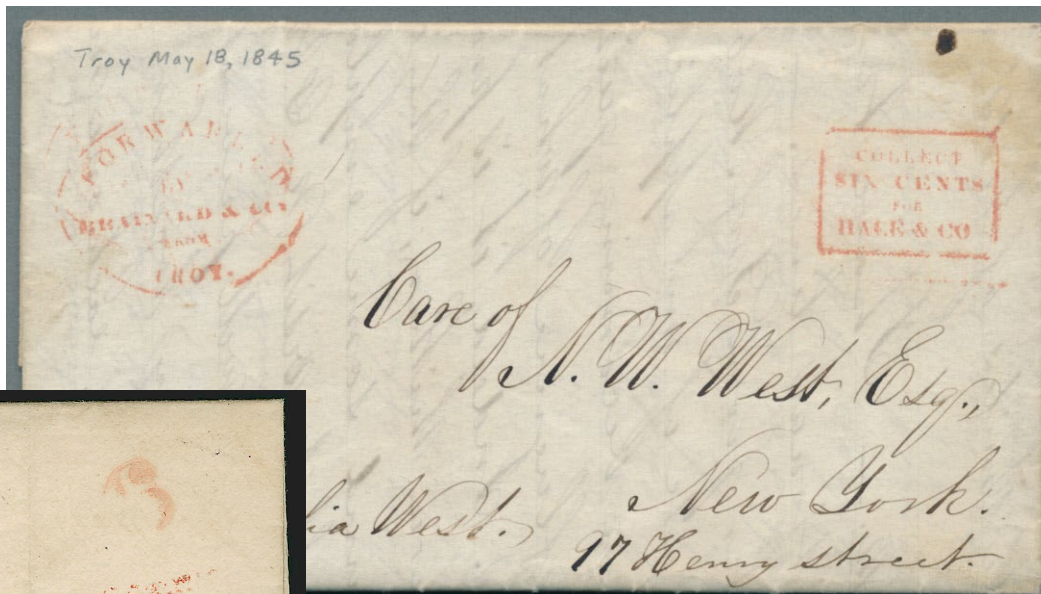 Troy May 18, 1845
FORWARDED
BY
BRAINARD & CO
FROM
TROY.
COLLECT
SIX CENTS
FOR
HALE & CO
Care of
N. W. West, Esq.,
New York.
lia West.
97 Henry street.